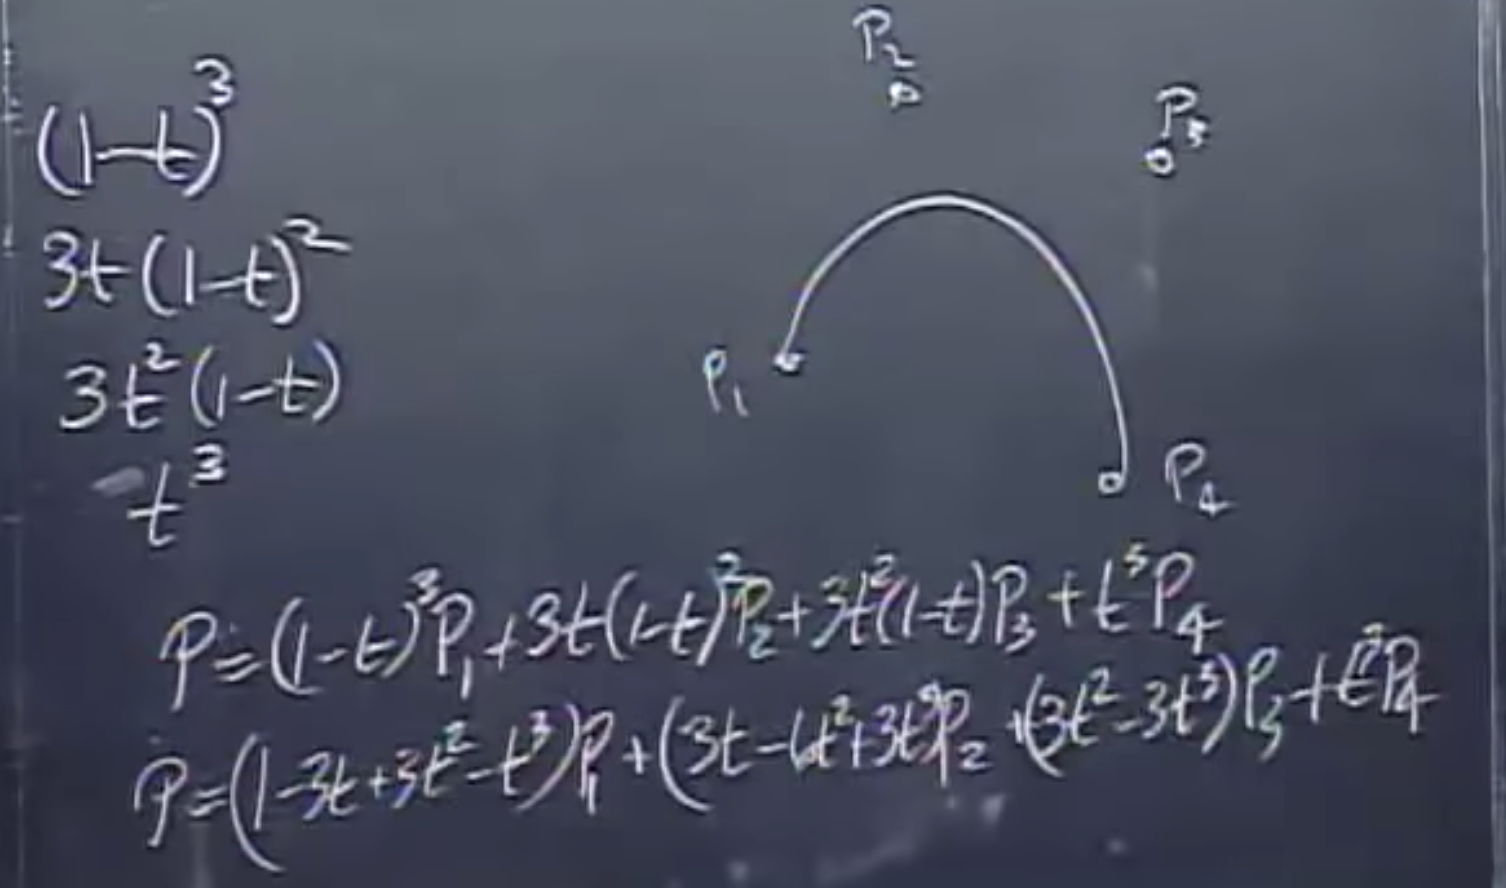 (1-t)³
3t(1-t)²
3t²(1-t)
t³
P₂
P₃
P₁
P₄
P=(1-t)³P₁+3t(1-t)²P₂+3t²(1-t)P₃+t³P₄
P=(1-3t+3t²-t³)P₁+(3t-6t²+3t³)P₂+(3t²-3t³)P₃+t³P₄